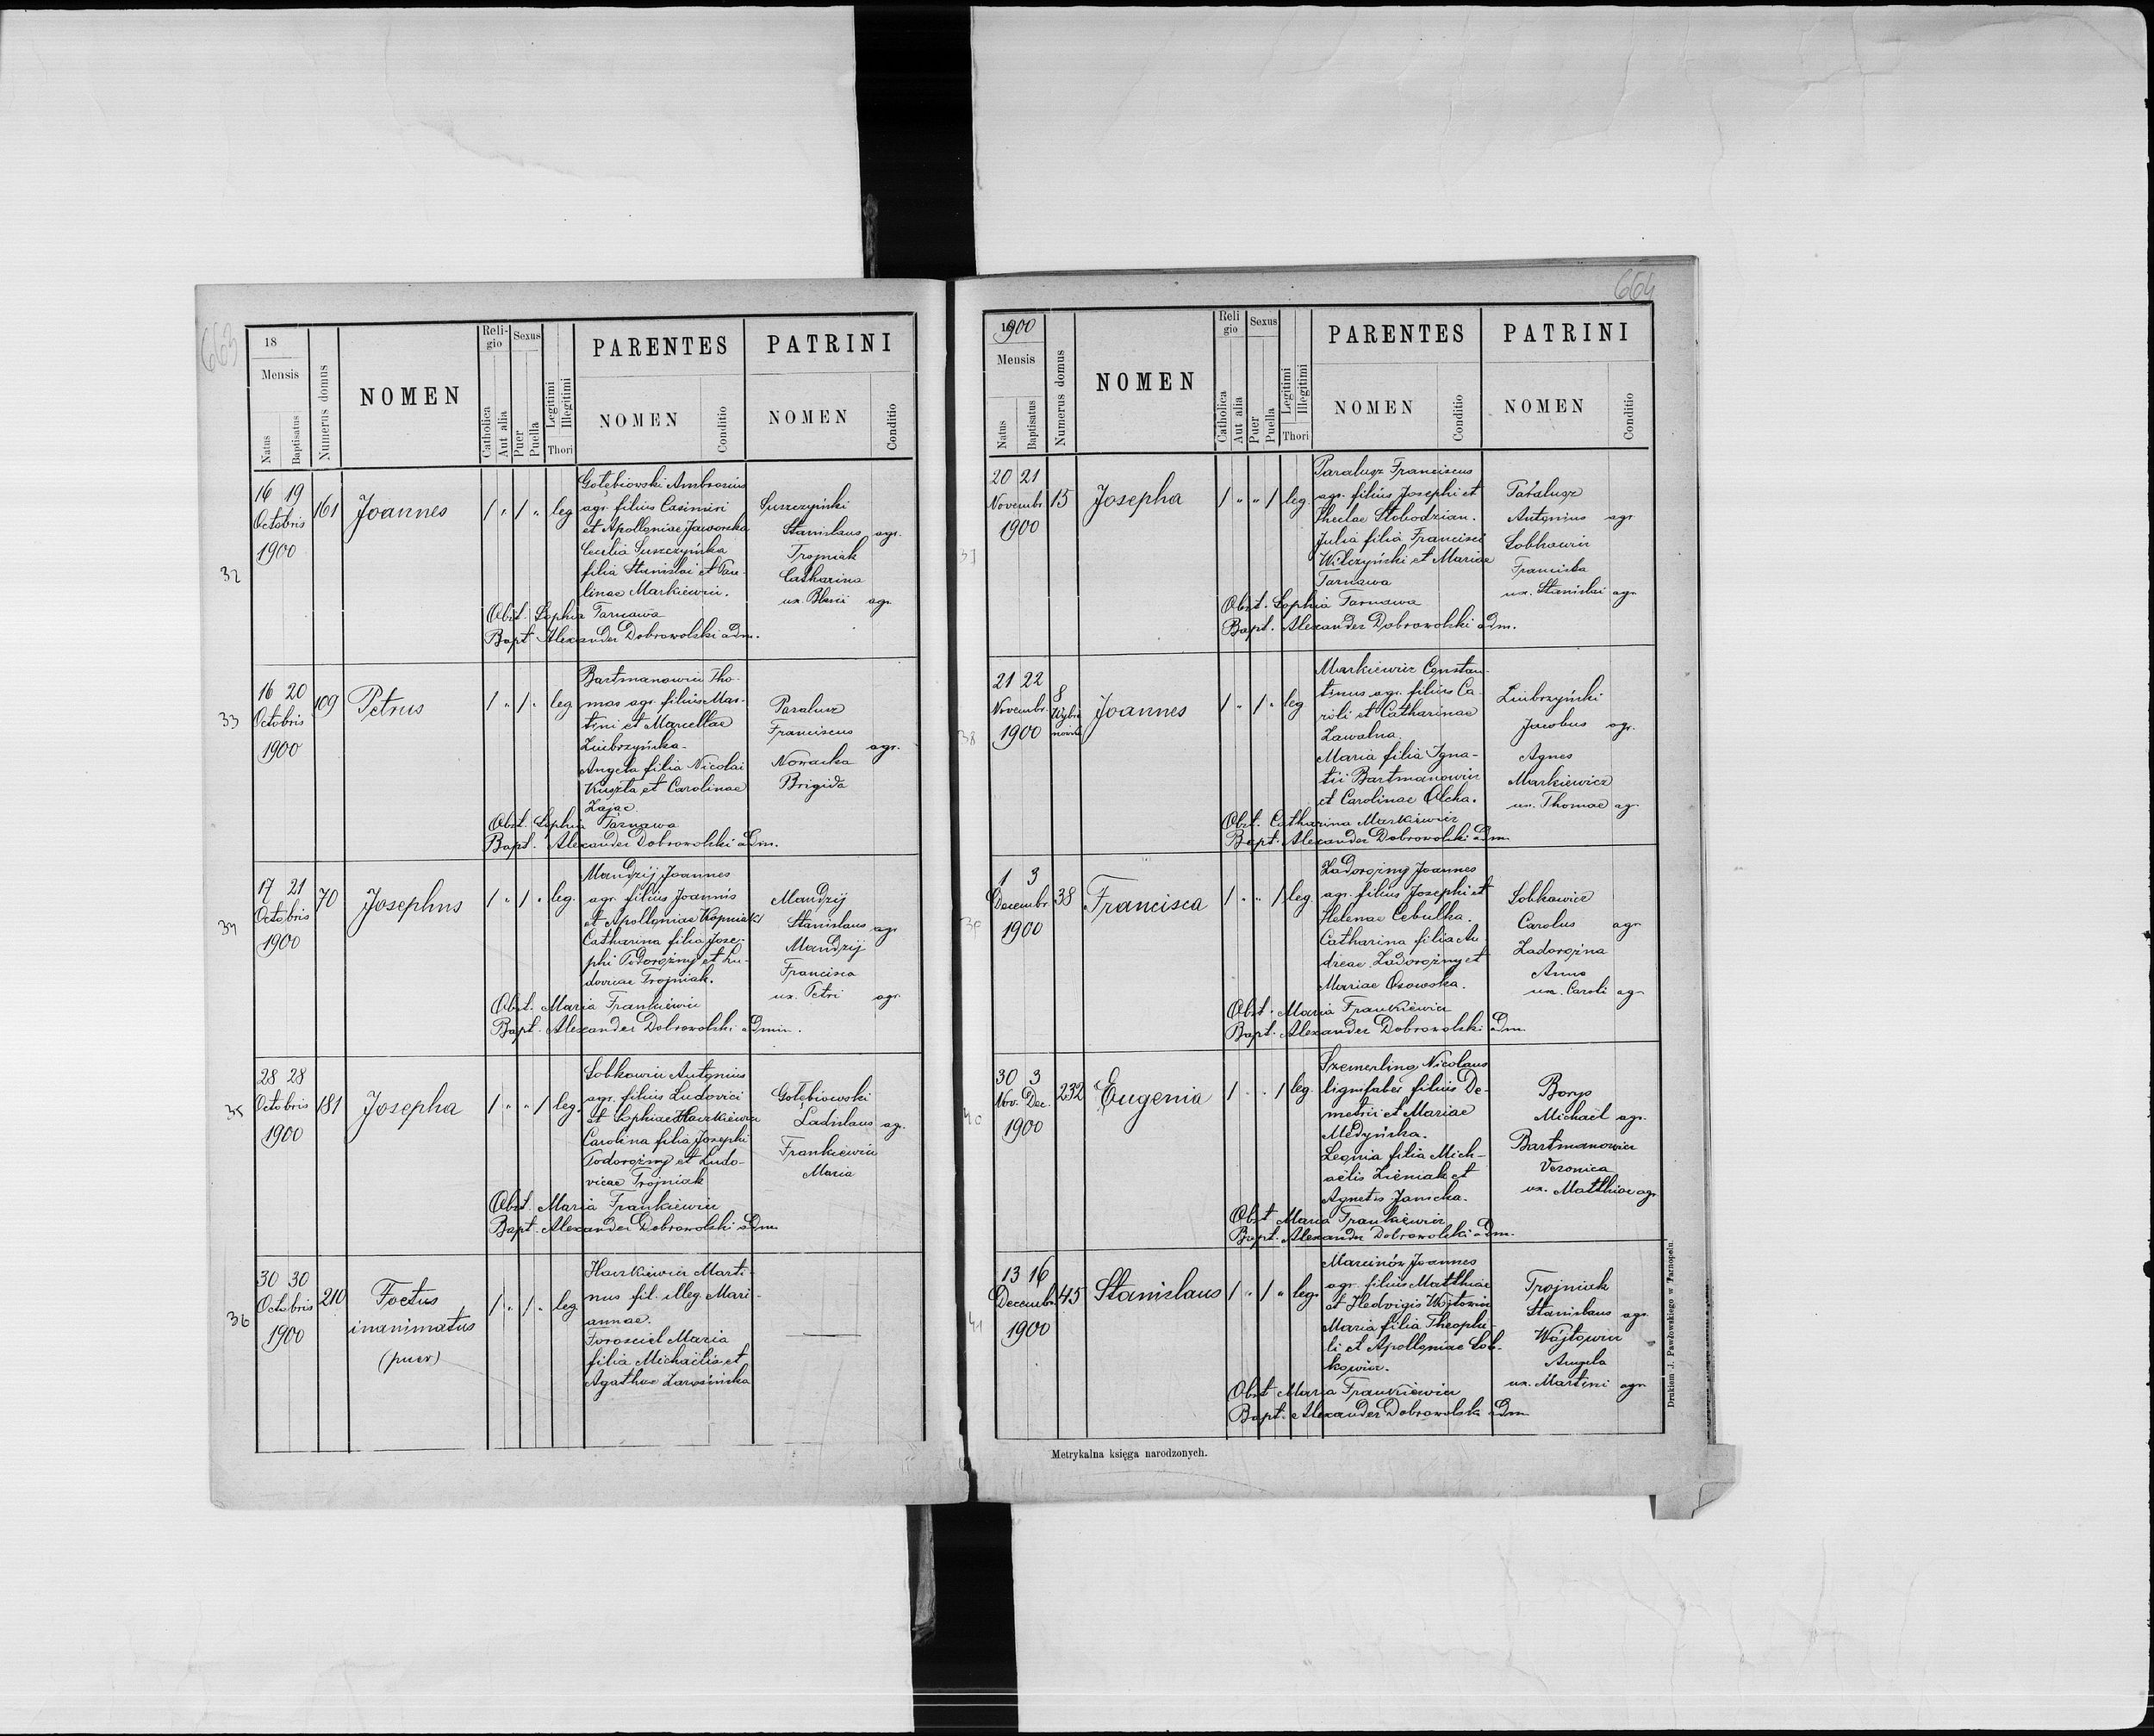 663
18
Mensis
Natus
Baptisatus
Numerus domus
NOMEN
Religio
Catholica
Aut alia
Sexus
Puer
Puella
Legitimi
Illegitimi
Thori
PARENTES
NOMEN
Conditio
PATRINI
NOMEN
Conditio
32
16 19
Octobris
1900
161
Joannes
1 " 1 " leg
Gołębiowski Ambrosius
agr. filius Casimiri
et Apolloniae Jaworska
Cecilia Suszczyńska
filia Stanislai et Pau-
linae Markiewicz.
Suszczyński
Stanislaus agr.
Trojniak
Catharina
ux. Blasii agr.
Obst. Sophia Tarnawa
Bapt. Alexander Dobrowolski adm.
33
16 20
Octobris
1900
109
Petrus
1 " 1 " leg
Bartmanowicz Tho-
mas agr. filius Mar-
tini et Marcellae
Ziubrzyńska.
Angela filia Nicolai
Kuszla et Carolinae
Zając.
Paralusz
Franciscus
agr.
Nowacka
Brigida
Obst. Sophia Tarnawa
Bapt. Alexander Dobrowolski adm.
34
17 21
Octobris
1900
70
Josephus
1 " 1 " leg.
Mandzij Joannes
agr. filius Joannis
et Apolloniae Kopniak
Catharina filia Jose-
phi Podorożny et Lu-
dovicae Trojniak.
Mandzij
Stanislaus agr
Mandzij
Francisca
ux. Petri agr.
Obst. Maria Frankiewicz
Bapt. Alexander Dobrowolski admin.
35
28 28
Octobris
1900
181
Josepha
1 " " 1 leg.
Sobkowicz Antonius
agr. filius Ludovici
et Sophiae Haczkiewicz
Carolina filia Josephi
Podorożny et Ludo-
vicae Trojniak
Gołębiowski
Ladislaus ag.
Frankiewicz
Maria
Obst. Maria Frankiewicz
Bapt. Alexander Dobrowolski adm.
36
30 30
Octobris
1900
210
Foetus
inanimatus
(puer)
1 " 1 " leg
Haczkiewicz Marti-
nus fil. illeg. Mari-
annae.
Maria
filia Michaëlis et
Agathae
664
1900
Mensis
Natus
Baptisatus
Numerus domus
NOMEN
Religio
Catholica
Aut alia
Sexus
Puer
Puella
Legitimi
Illegitimi
Thori
PARENTES
NOMEN
Conditio
PATRINI
NOMEN
Conditio
37
20 21
Novembr.
1900
15
Josepha
1 " " 1 leg.
Paralusz Franciscus
agr. filius Josephi et
Theclae Słobodzian.
Julia filia Francisci
Wilczyński et Mariae
Tarnawa
Paralusz
Antonius agr
Sobkowicz
Francisca
ux. Stanislai agr
Obst. Sophia Tarnawa
Bapt. Alexander Dobrowolski adm.
38
21 22
Novembr.
1900
8
Joannes
1 " 1 " leg
Markiewicz Constan-
tinus agr. filius Ca-
roli et Catharinae
Zawalna.
Maria filia Igna-
tii Bartmanowicz
et Carolinae Olcha.
Ziubrzyński
Jacobus agr.
Agnes
Markiewicz
ux. Thomae ag.
Obst. Catharina Markiewicz
Bapt. Alexander Dobrowolski adm.
39
1 3
Decembr
1900
38
Francisca
1 " " 1 leg.
Zadorożny Joannes
agr. filius Josephi et
Helenae Cebulka.
Catharina filia An
dreae Zadorożny et
Mariae Osowska.
Sobkowicz
Carolus agr
Zadorożna
Anna
ux. Caroli ag
Obst. Maria Frankiewicz
Bapt. Alexander Dobrowolski adm.
40
30 3
Nov. Dec.
1900
232
Eugenia
1 " " 1 leg.
Szemerling Nicolaus
lignifaber filius De-
metrii et Mariae
Medyńska.
Leonia filia Mich-
aëlis Zieniak et
Agnetis Janicka.
Borys
Michaël agr.
Bartmanowicz
Veronica
ux. Matthiae agr
Obst Maria Frankiewicz
Bapt. Alexander Dobrowolski adm.
41
13 16
Decembr.
1900
45
Stanislaus
1 " 1 " leg.
Marcinów Joannes
agr. filius Matthiae
et Hedvigis Wójtowicz
Maria filia Theophi-
li et Apolloniae Sob-
kowicz.
Trojniak
Stanislaus agr
Wójtowicz
Angela
ux. Martini agr
Obst Maria Frankiewicz
Bapt. Alexander Dobrowolski adm
Metrykalna księga narodzonych.
Drukiem J. Pawłowskiego w Tarnopolu.